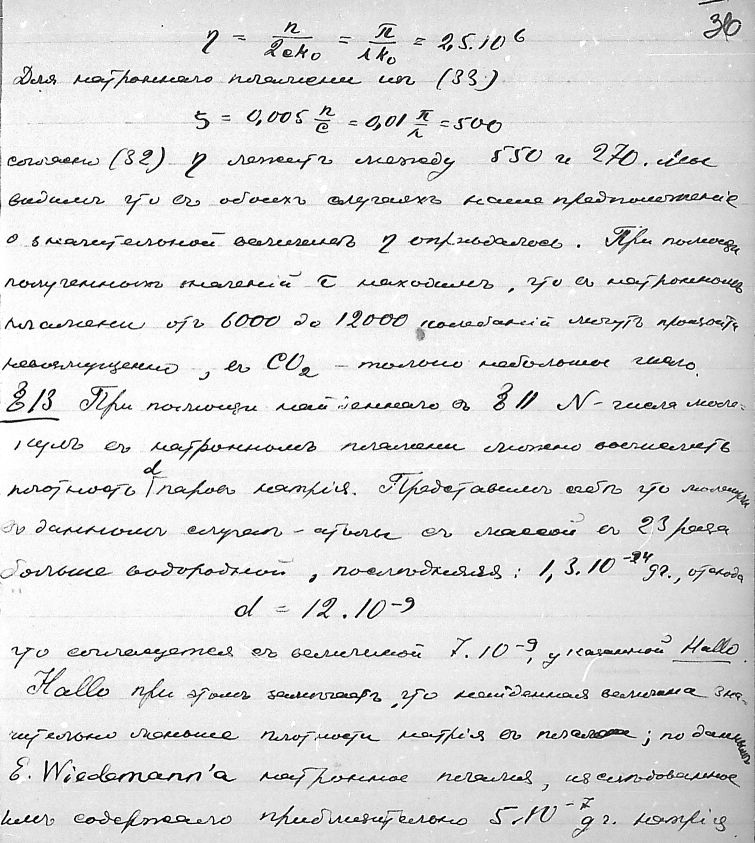 30
η = n/2ck₀ = π/λk₀ = 2,5.10⁶
Для натроннаго пламени изъ (33)
ζ = 0,005 n/c = 0,01 π/λ = 500
согласно (32) η лежитъ между 550 и 270. Мы
видимъ что въ обоихъ случаяхъ наше предположенiе
о значительной величинѣ η оправдалось. При помощи
полученныхъ значенiй τ находимъ, что въ натронномъ
пламени отъ 6000 до 12000 колебанiй могутъ произойти
невозмущенно, въ CO₂ – только небольшое число.
§ 13 При помощи найденнаго въ § 11 N – числа моле-
кулъ въ натронномъ пламени можно вычислить
плотность d паровъ натрiя. Представимъ себѣ что молекулы
въ данномъ случаѣ – атомы съ массой въ 23 раза
больше водородной, послѣдняя: 1,3.10⁻²⁴ gr., отсюда
d = 12.10⁻⁹
что согласуется съ величиной 7.10⁻⁹, указанной Hallo.
Hallo при этомъ замѣчаетъ, что найденная величина зна-
чительно меньше плотности натрiя въ пламени; по даннымъ
E. Wiedemann'a натронное пламя, изслѣдованное
имъ содержало приблизительно 5.10⁻⁷ gr. натрiя